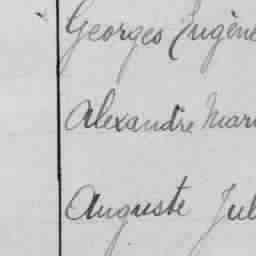 Georges Eugène
Alexandre Mari
Auguste Jul